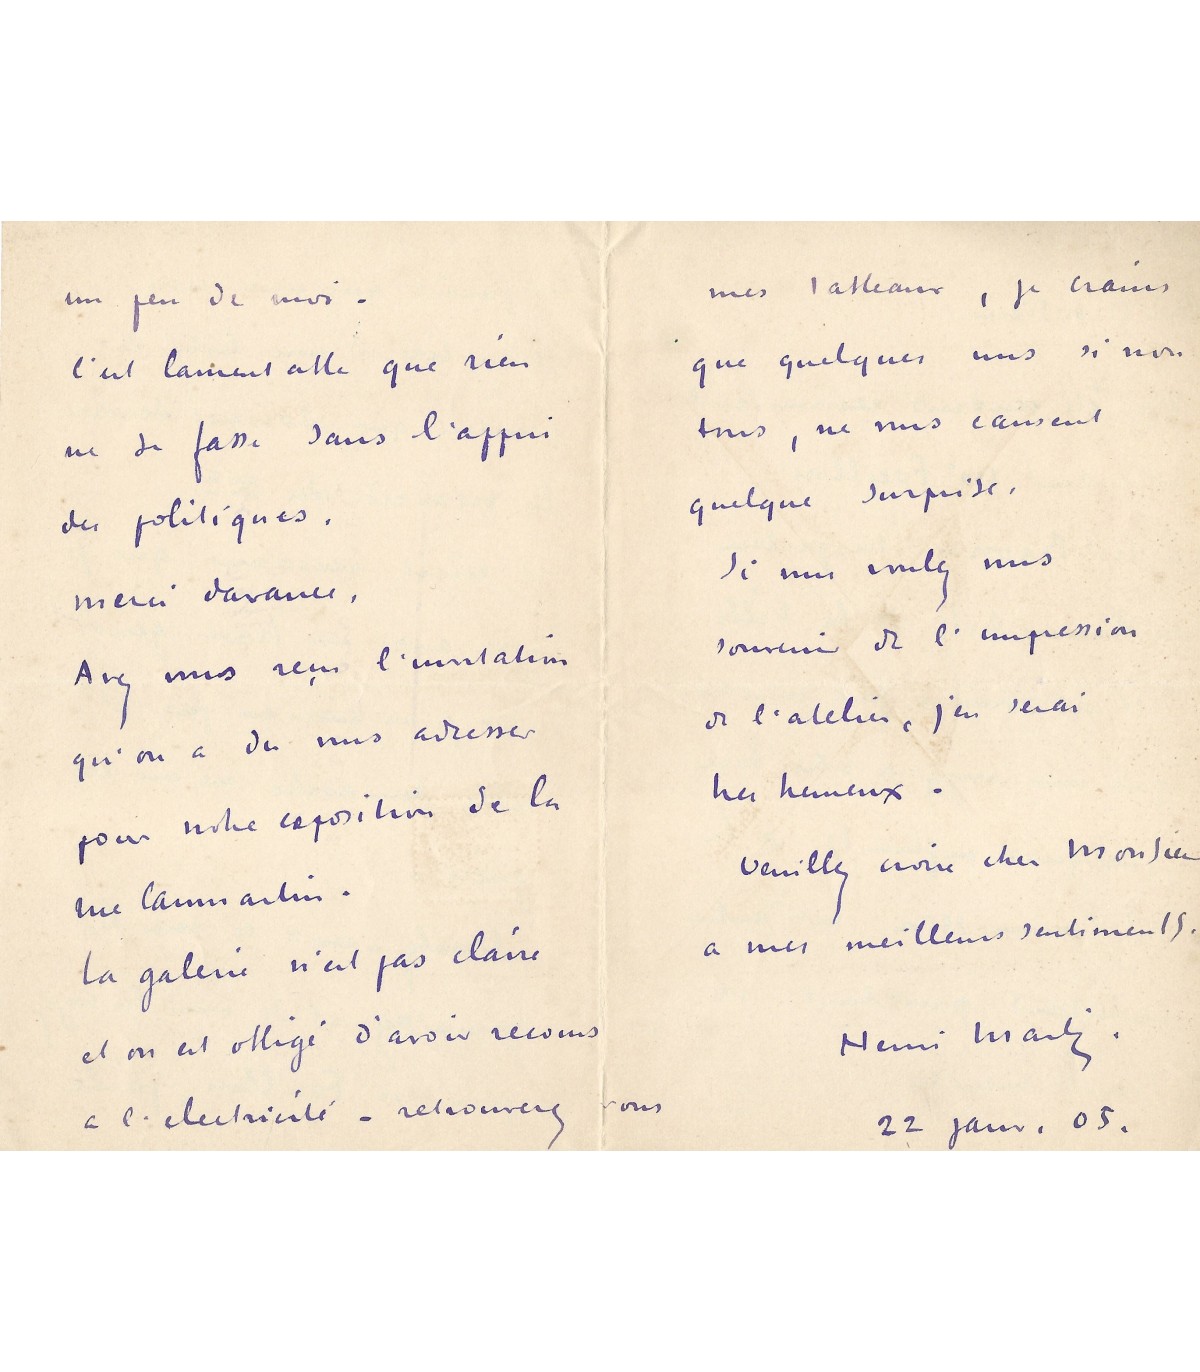 un peu de moi -
c'est lamentable que rien
ne se fasse sans l'appui
des politiques.
merci davance,
Avez vous reçu l'invitation
qu'on a du vous adresser
pour notre exposition de la
rue Caumartin -
La galerie n'est pas claire
et on est obligé d'avoir recours
a l'electricité - retrouverez vous
mes tableaux, je crains
que quelques uns si non
tous, ne vous causent
quelque surprise.
Si vous voulez vous
souvenir de l'impression
de l'atelier, j'en serai
tres heureux -
Veuillez croire cher Monsieur
a mes meilleurs sentiments.
Henri Martin.
22 janv. 05.